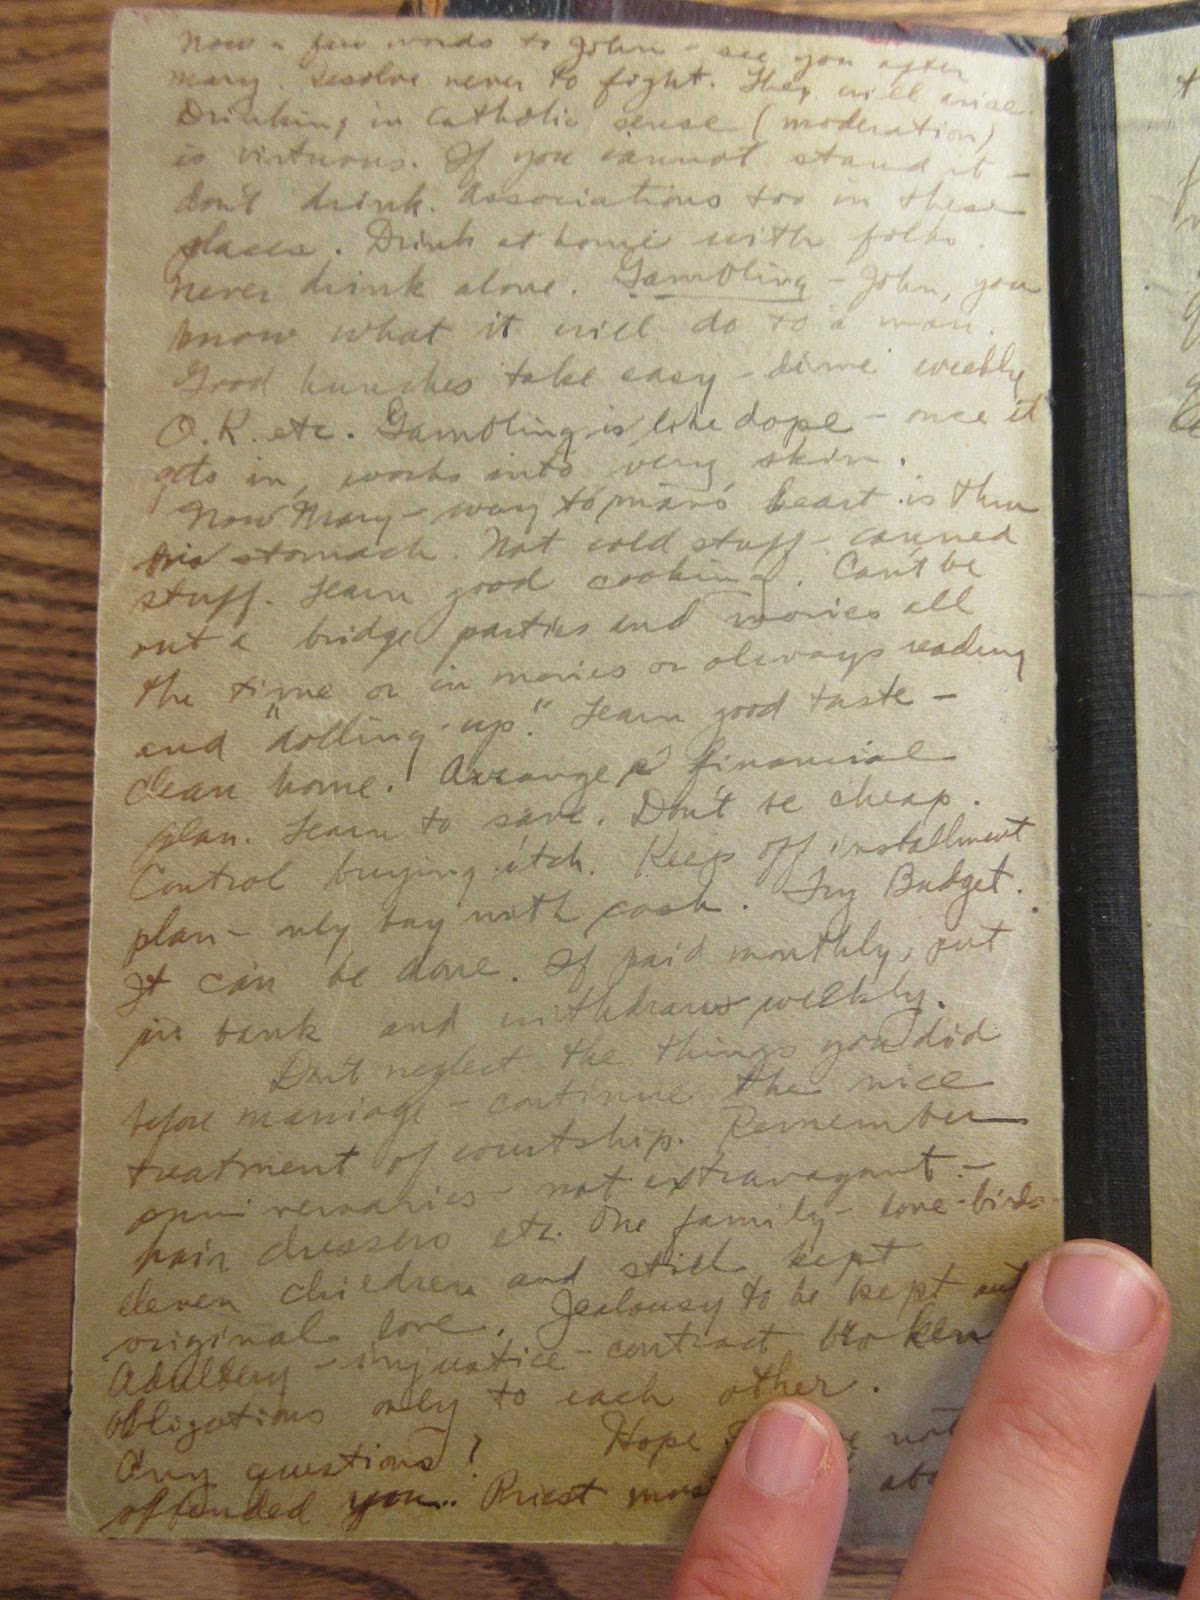 Now a few words to John - see you after
mary. resolve never to fight. They will arise.
Drinking in Catholic sense (moderation)
is virtuous. If you cannot stand it -
don't drink. Associations too in these
places. Drink at home with folks.
never drink alone. Gambling - John, you
know what it will do to a man.
Good hunches take easy - dime weekly
O.K. etc. Gambling is like dope - once it
gets in, works into very skin.
Now Mary - way to man's heart is thru
his stomach. Not cold stuff - canned
stuff. Learn good cooking. Can't be
out a bridge parties and movies all
the time or in movies or always reading
and "dolling up". Learn good taste -
clean home. Arrange financial
plan. Learn to save. Don't be cheap.
Control buying itch. Keep off installment
plan - only buy with cash. Try Budget.
It can be done. If paid monthly, put
in bank and withdraw weekly.
Don't neglect the things you did
before marriage - continue the nice
treatment of courtship. Remember
anniversaries - not extravagant -
hair dressers etc. One family - love-birds -
eleven children and still kept
original love. Jealousy to be kept out
Adultery - injustice - contract broken
obligations only to each other.
Any questions? Hope not
offended you.. Priest